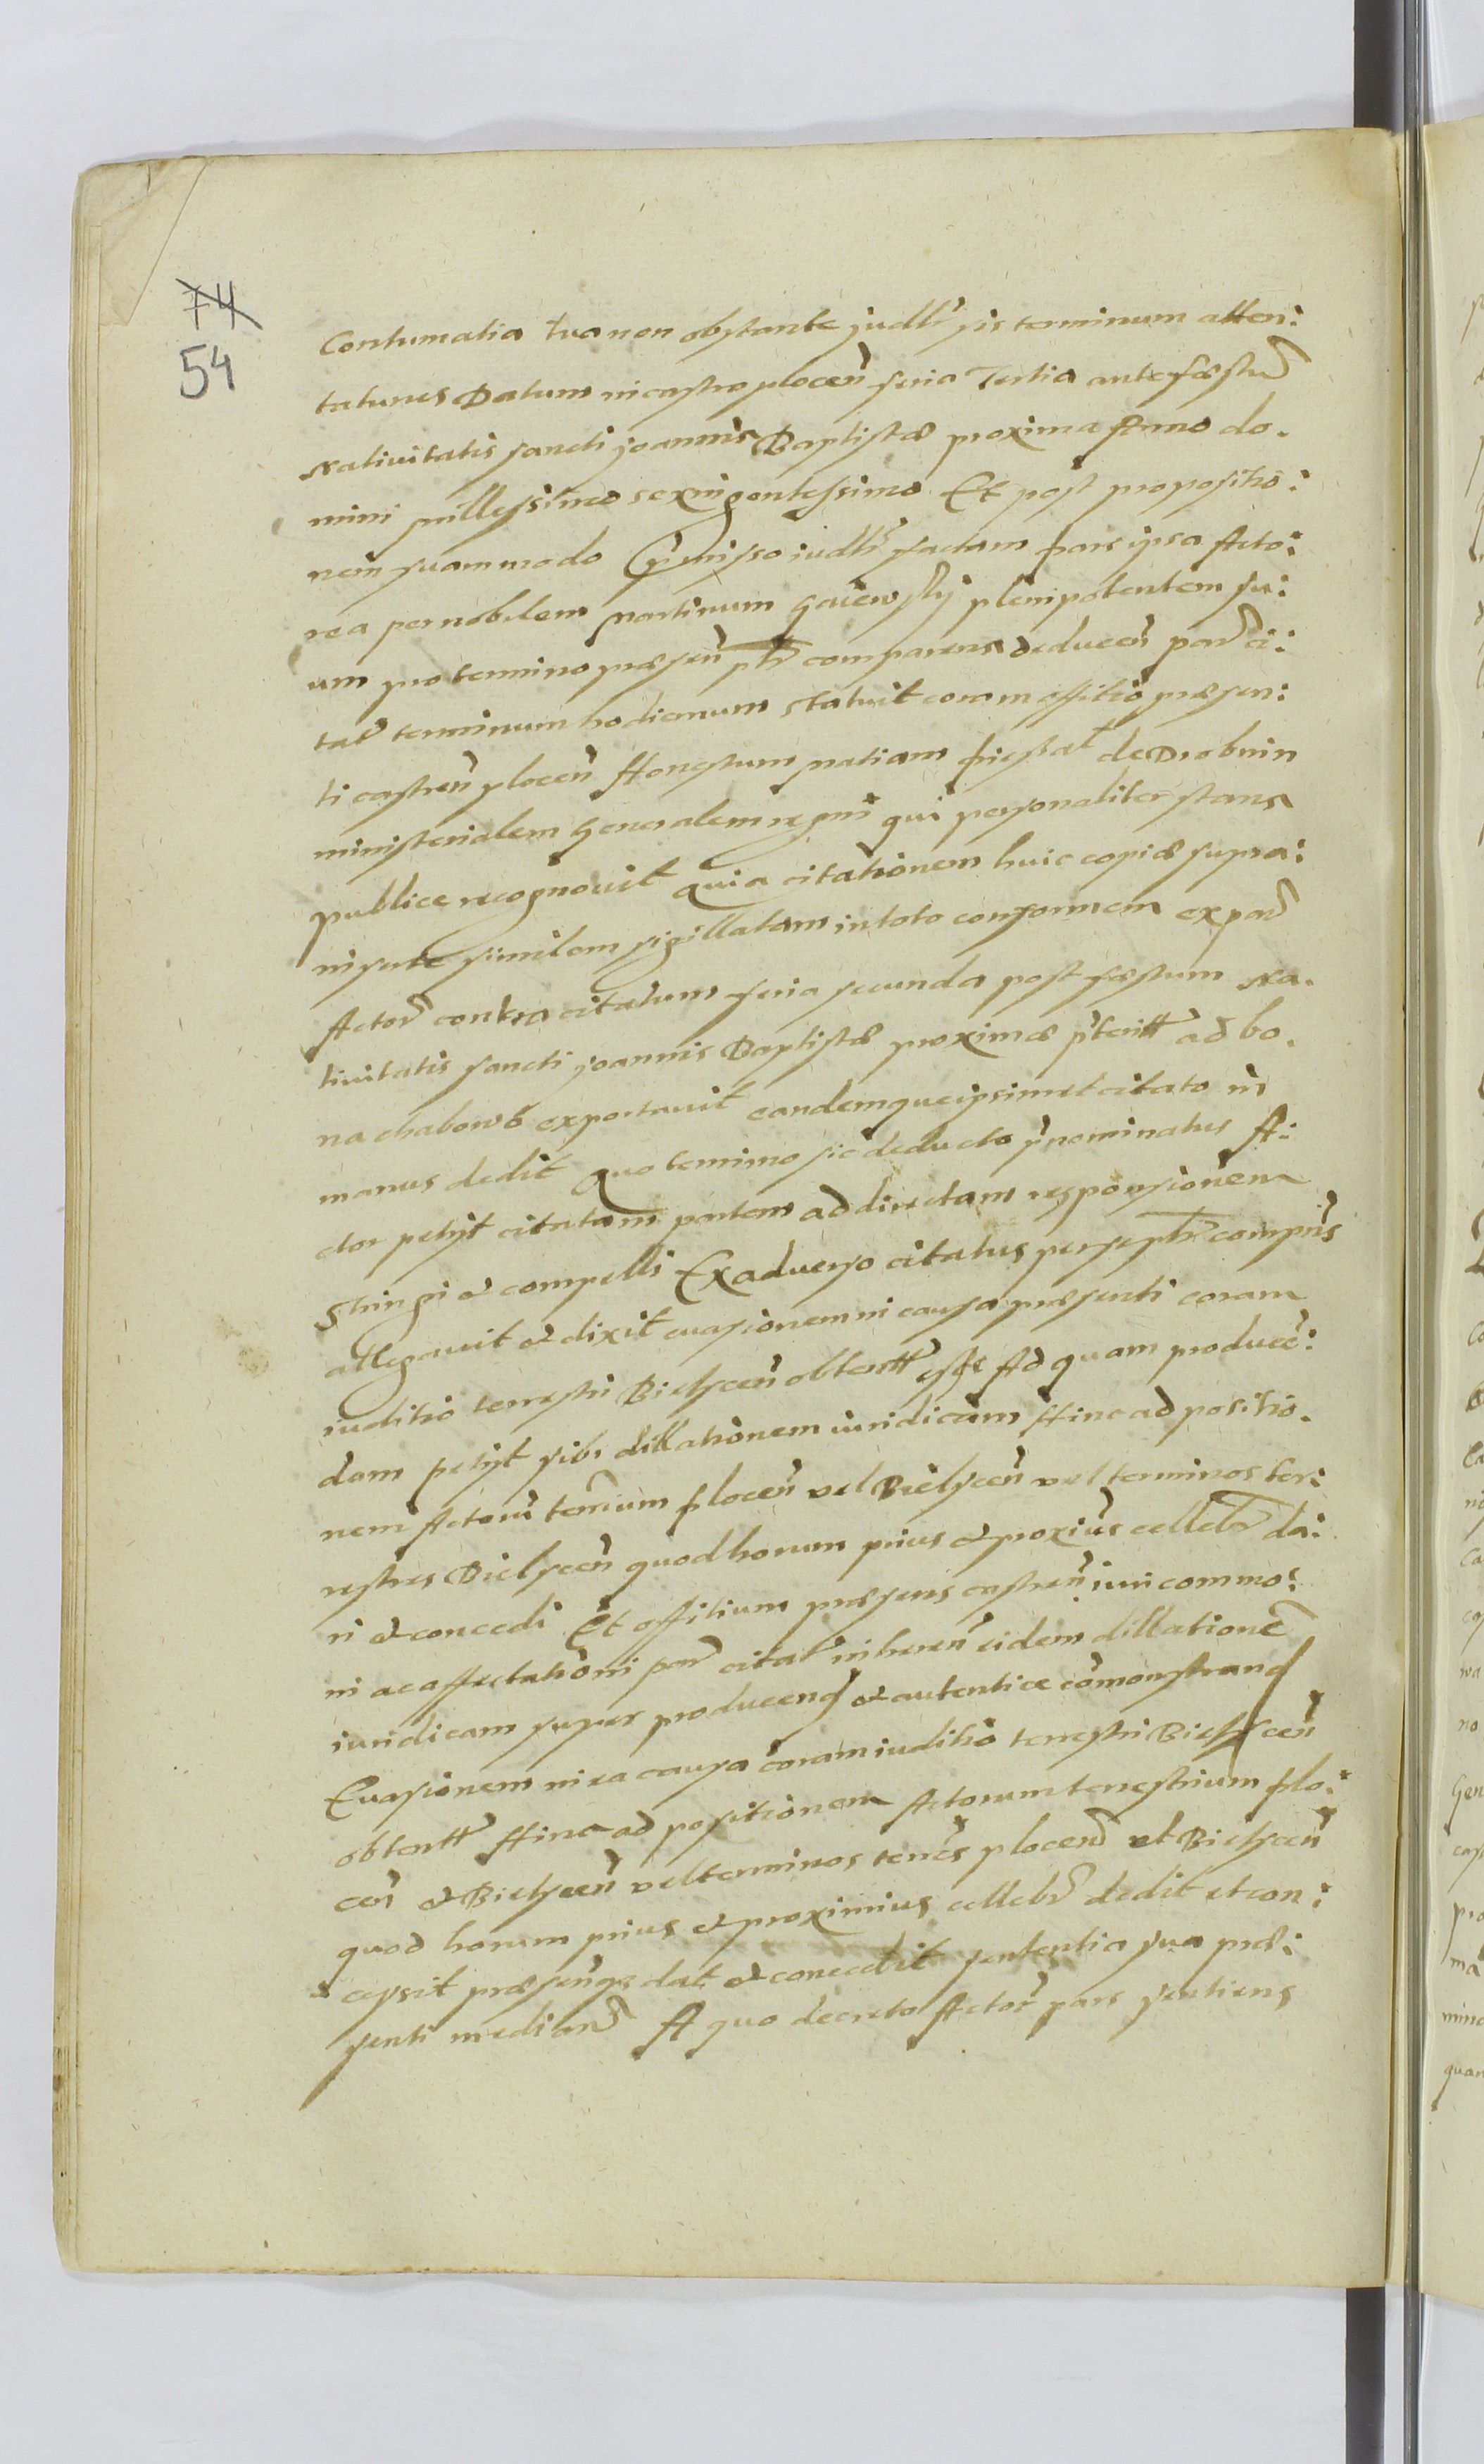 74
54
Contumatia tua non obstante judlr sis terminum atten:
taturus Datum in castro plocen̄ feria Tertia ante fæstu
Natiuitatis sancti joannis Baptistæ proxima Anno do.
mini millessimo sexingentessimo Et post propositio:
nem suam modo p̄misso iudlr factam pars ipsa Acto:
rea per nobilem Martinum Gaiewsky plenipotentem su:
um pro termino præsen̄ plr comparens deducen̄ par ci:
tat terminum hodiernum statuit coram offitio præsen:
ti castren̄ plocen̄ Honestum Matiam de Drobnin
ministerialem Generalem regni qui personaliter stans
publice recognouit Quia citationem huic copiæ supra:
insertæ similem sigillatam in toto conformem ex par
Actor contra citatum feria secunda post fæstum Na.
tiuitatis sancti joannis Baptistæ proximæ p̄teritt ad bo.
na chabowo exportauit eandemque ipsimet citato in
manus dedit Quo termino sic deducto p̄nominatus A:
ctor petijt citatam partem ad directam responsionem
stringi et compelli Ex aduerso citatus per se plr comprns
allegauit et dixit euasionem in causa præsenti coram
iuditio terrestri Bielscen̄ obtentt esse Ad quam producē:
dam petijt sibi dillationem iuridicam Hinc ad positio.
nem Actoru terrium plocen̄ vel Bielscen̄ vel terminos ter:
restres Bielscen̄ quod horum prius et proxius cellebr da:
ri et concedi Et offitium præsens castren̄ iuri commo:
ni ac affectationi par citat inheren̄ eidem dillationē
iuridicam super producend et autentice cōmonstrand
Euasionem in ea causa coram iuditio terrestri Bielscen̄
obtentt Hinc ad positionem Actorum terrestrium plo:
cen̄ et Bielscen̄ vel terminos terres plocen̄ et Bielscen̄
quod horum prius et proximius cellebr dedit et con:
cessit præsensqe dat et concedit sententia sua præ:
senti median̄ A quo decreto Actor pars sentiens